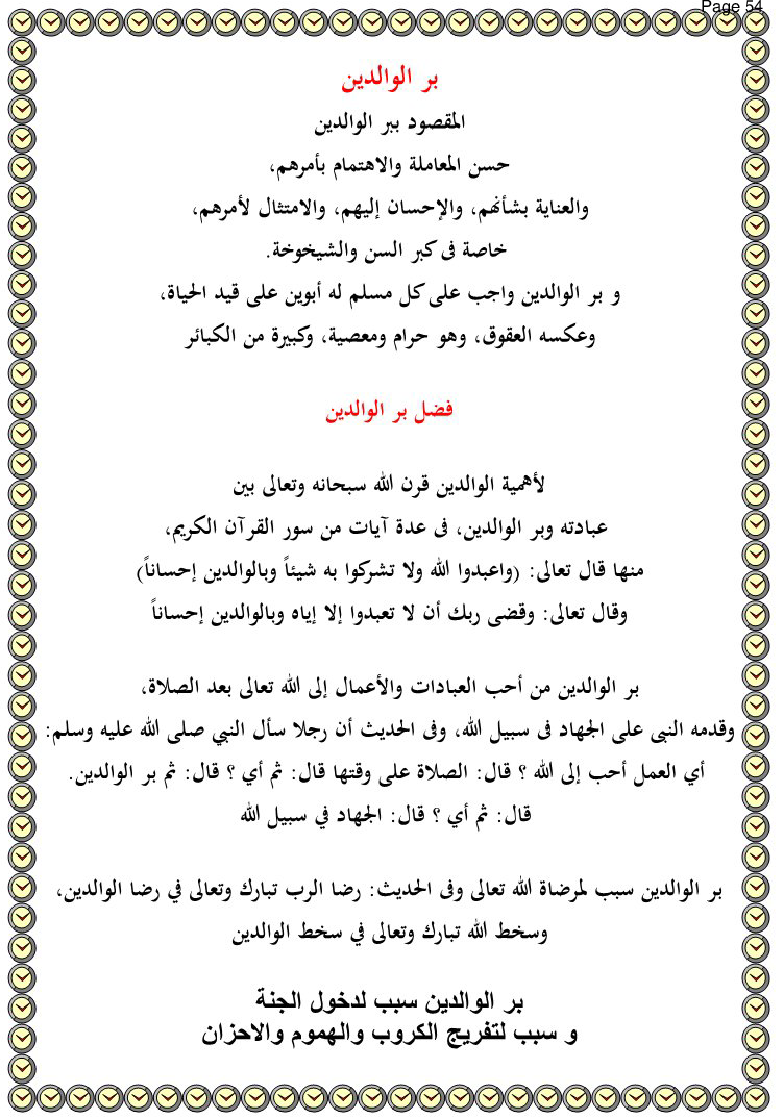 Page 54
بر الوالدين
المقصود ببر الوالدين
حسن المعاملة والاهتمام بأمرهم،
والعناية بشأنهم، والإحسان إليهم، والامتثال لأمرهم،
خاصة فى كبر السن والشيخوخة.
و بر الوالدين واجب على كل مسلم له أبوين على قيد الحياة،
وعكسه العقوق، وهو حرام ومعصية، وكبيرة من الكبائر
فضل بر الوالدين
لأهمية الوالدين قرن الله سبحانه وتعالى بين
عبادته وبر الوالدين، فى عدة آيات من سور القرآن الكريم،
منها قال تعالى: (واعبدوا الله ولا تشركوا به شيئاً وبالوالدين إحساناً)
وقال تعالى: وقضى ربك أن لا تعبدوا إلا إياه وبالوالدين إحساناً
بر الوالدين من أحب العبادات والأعمال إلى الله تعالى بعد الصلاة،
وقدمه النبى على الجهاد فى سبيل الله، وفى الحديث أن رجلا سأل النبي صلى الله عليه وسلم:
أي العمل أحب إلى الله ؟ قال: الصلاة على وقتها قال: ثم أي ؟ قال: ثم بر الوالدين.
قال: ثم أي ؟ قال: الجهاد في سبيل الله
بر الوالدين سبب لمرضاة الله تعالى وفى الحديث: رضا الرب تبارك وتعالى في رضا الوالدين،
وسخط الله تبارك وتعالى في سخط الوالدين
بر الوالدين سبب لدخول الجنة
و سبب لتفريج الكروب والهموم والاحزان